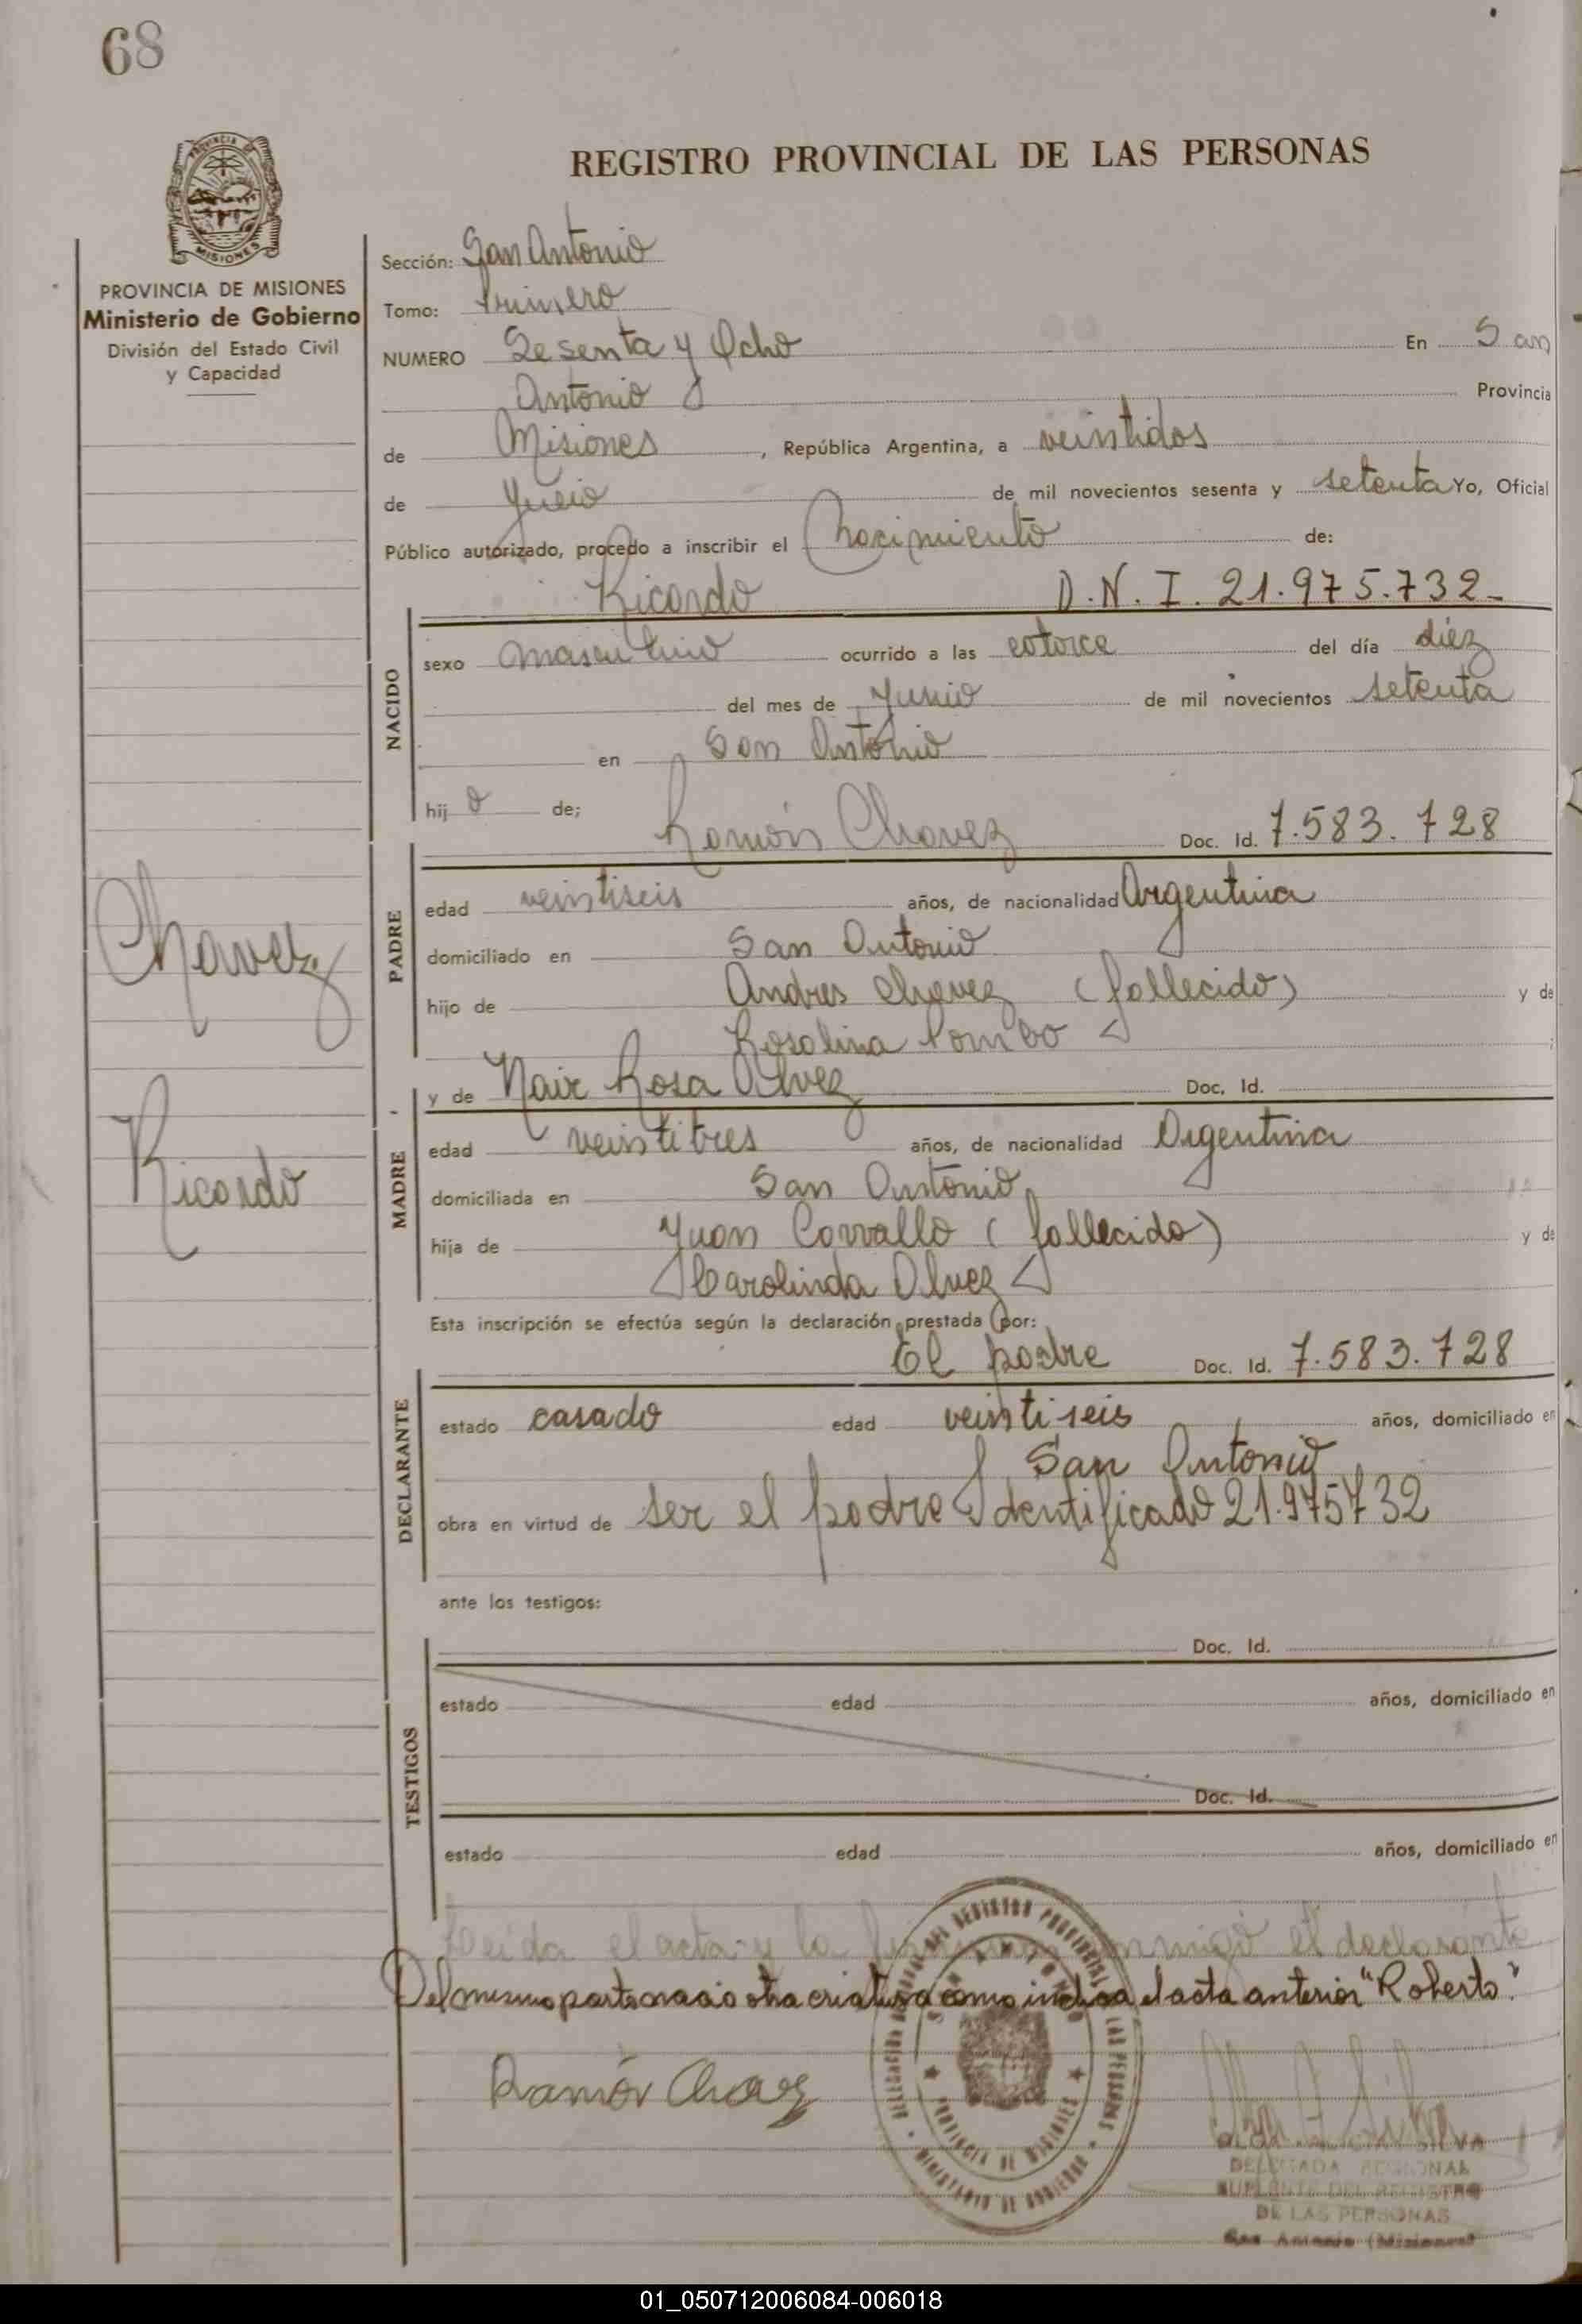 68
REGISTRO PROVINCIAL DE LAS PERSONAS
PROVINCIA DE MISIONES
Ministerio de Gobierno
División del Estado Civil
y Capacidad
Sección: San Antonio
Tomo: Primero
NUMERO Sesenta y Ocho En San
Antonio Provincia
de Misiones, República Argentina, a veintidos
de de mil novecientos sesenta y setenta Yo, Oficial
Público autorizado, procedo a inscribir el Nacimiento de:
Ricardo D.N.I. 21.975.732-
NACIDO
sexo masculino ocurrido a las catorce del día diez
del mes de Junio de mil novecientos setenta
en San Antonio
hijo de; Ramón Chavez Doc. Id. 7.583.728
PADRE
edad veintiseis años, de nacionalidad Argentina
domiciliado en San Antonio
hijo de Andres Chavez (fallecido) y de
Rosalina Pombo
Chavez
Ricardo
y de Nair Rosa Alvez Doc. Id.
MADRE
edad veintitres años, de nacionalidad Argentina
domiciliada en San Antonio
hija de Juan Carvallo (fallecido) y de
Carolinda Alvez
Esta inscripción se efectúa según la declaración prestada por:
El padre Doc. Id. 7.583.728
DECLARANTE
estado casado edad veintiseis años, domiciliado en
San Antonio
obra en virtud de ser el padre Identificado 21.975732
ante los testigos:
Doc. Id.
TESTIGOS
estado edad años, domiciliado en
Doc. Id.
estado edad años, domiciliado en
Leida el acta y la conmigo el declarante
Del mismo parto nació otra criatura como indica el acta anterior "Roberto".
Ramón Chavez
SILVA
DELEGADA REGIONAL
SUPLENTE DEL REGISTRO
DE LAS PERSONAS
San Antonio (Misiones)
REGISTRO PROVINCIAL DE LAS PERSONAS
SAN ANTONIO
PROVINCIA DE MISIONES
MINISTERIO DE GOBIERNO
01_050712006084-006018